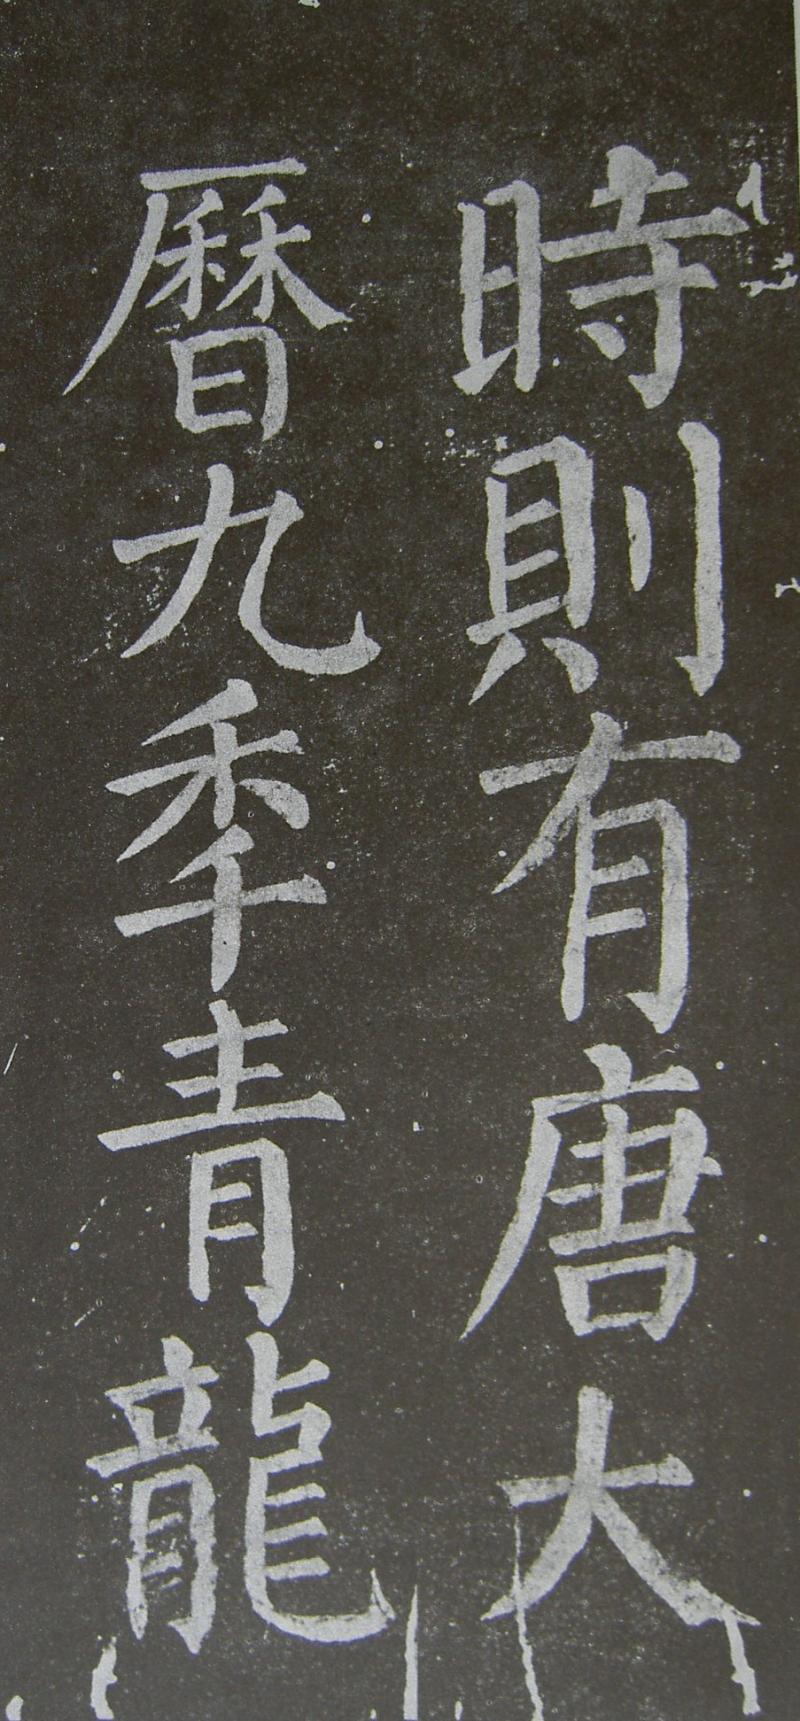 時則有唐大
曆九秊青龍